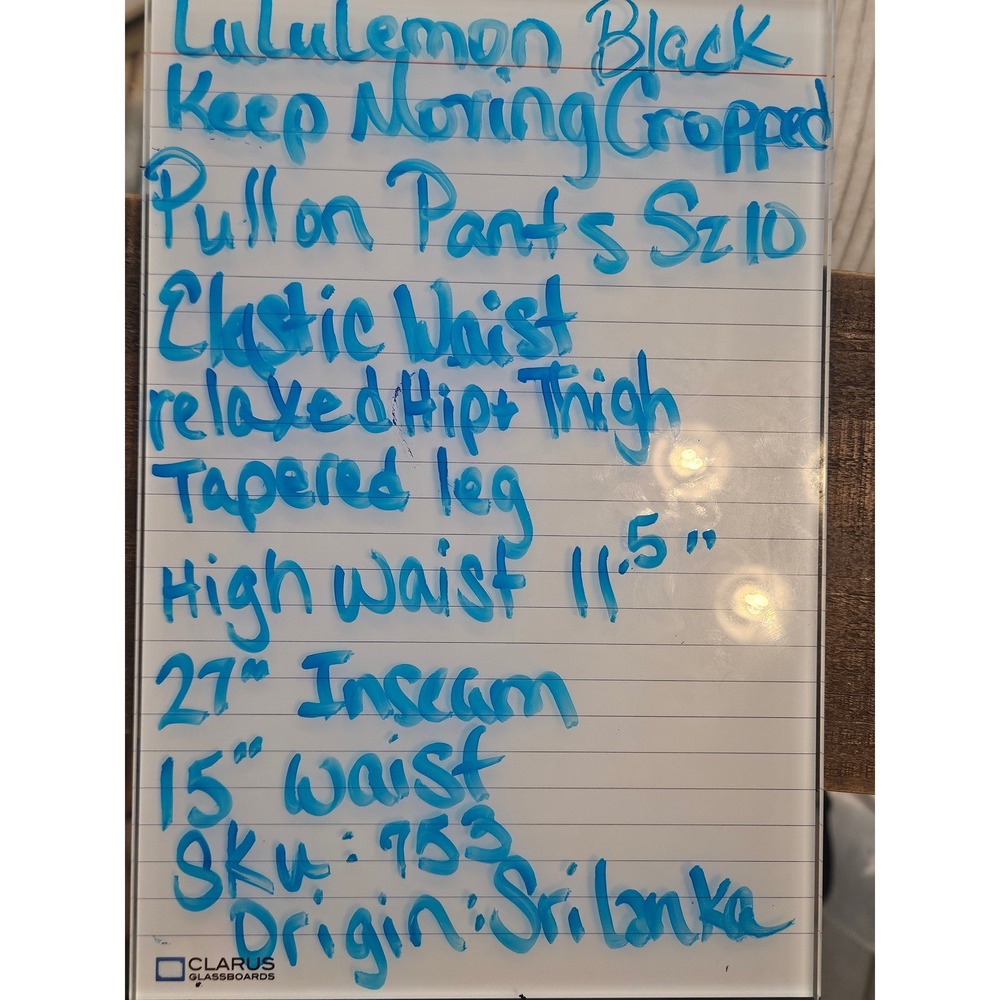 LuluLemon Black
Keep Moving Cropped
Pull on Pants Sz 10
Elastic Waist
relaxed Hip + Thigh
Tapered leg
High waist 11.5"
27" Inseam
15" waist
SKu: 753
Origin: Sri Lanka
CLARUS
GLASSBOARDS